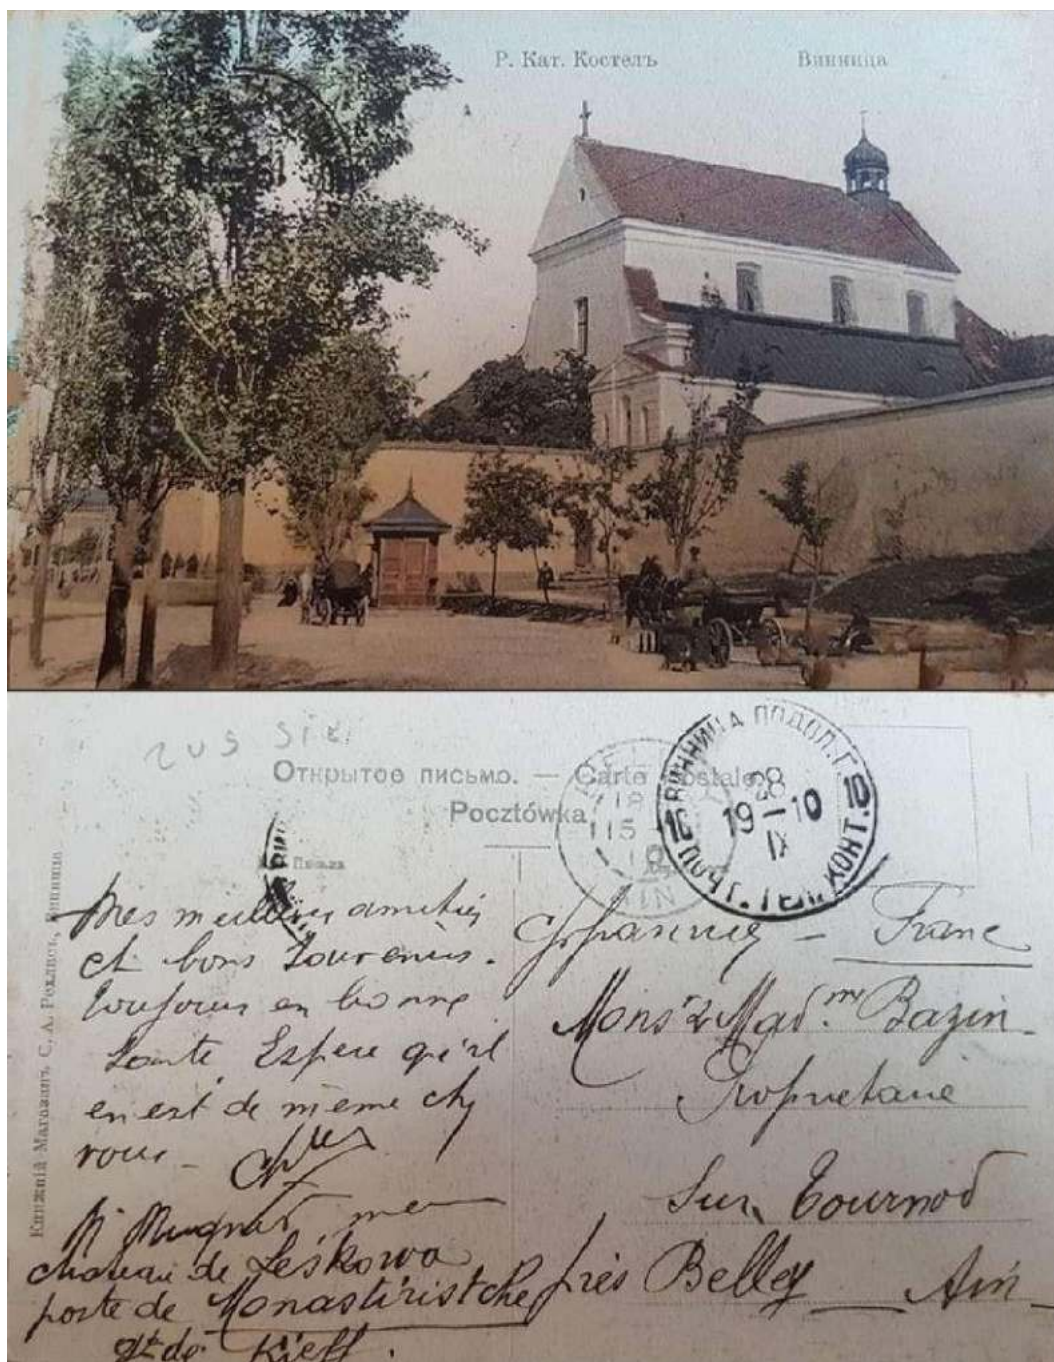 Р. Кат. Костелъ
Винница
Открытое письмо. — Carte postale.
Pocztówka
ВИННИЦА ПОДОЛ. Г.
28
19—10
IX
ПОЧТ. ТЕЛ. КОНТ.
Книжный Магазинъ С. А. Винница
Mes meilleures amitiés
et bons souvenirs.
Toujours en bonne
Santé. Espere qu'il
en est de même chez
vous —
château de Leśkowa
poste de Monastiristche
gt de Kieff.
France
Mons & Mad.me Bazin
Propriétaire
Sur Tournod
près Belley — Ain